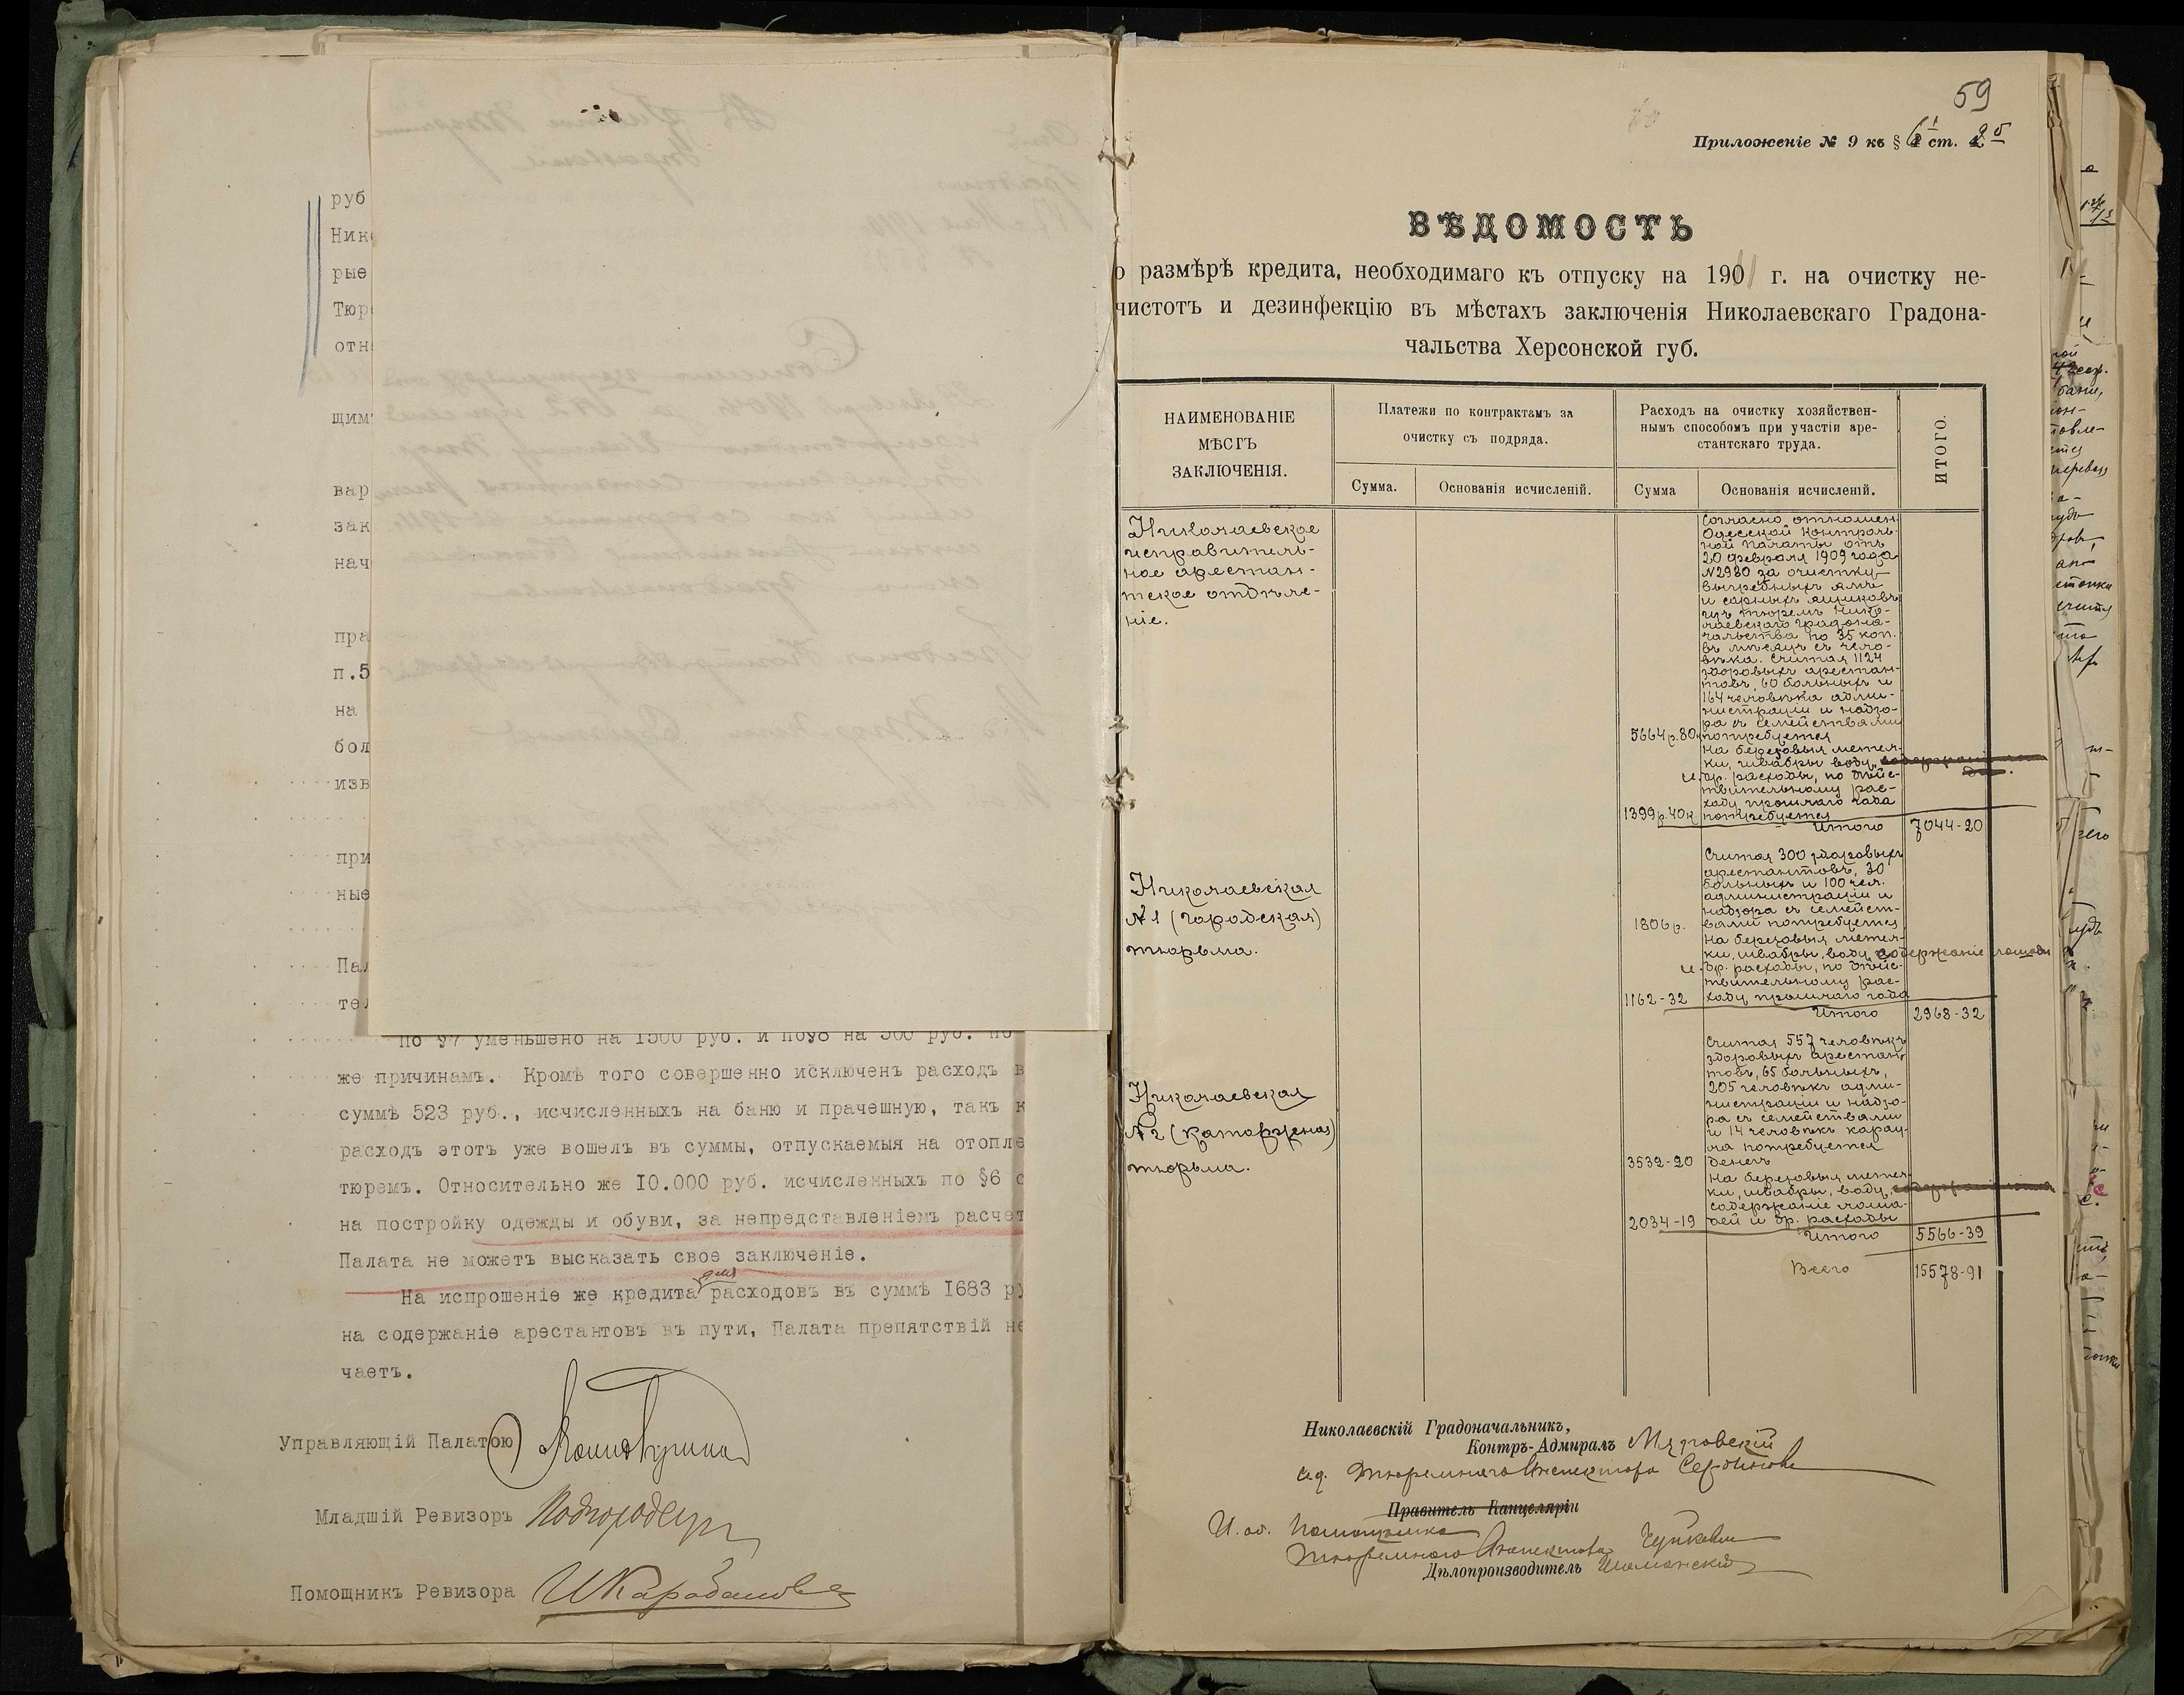 руб
Ник
рые
Тюр
отн
щим
вар
зак
нач
пра
п.5
на
бол
изв
при
ные
Пал
тел
по §7 уменьшено на 1500 руб. и по§8 на 500 руб. по
же причинамъ. Кромѣ того совершенно исключенъ расходъ в
суммѣ 523 руб., исчисленныхъ на баню и прачешную, такъ к
расходъ этотъ уже вошелъ въ суммы, отпускаемыя на отопле
тюремъ. Относительно же 10.000 руб. исчисленныхъ по §6 с
на постройку одежды и обуви, за непредставленіемъ расчет
Палата не можетъ высказать свое заключеніе.
На испрошеніе же кредита для расходовъ въ суммѣ 1683 ру
на содержаніе арестантовъ въ пути, Палата препятствій не
чаетъ.
Управляющій Палатою
Младшій Ревизоръ
Помощникъ Ревизора
59
Приложеніе № 9 къ § ст.
ВѢДОМОСТЬ
о размѣрѣ кредита, необходимаго къ отпуску на 1901 г. на очистку не-
чистотъ и дезинфекцію въ мѣстахъ заключенія Николаевскаго Градона-
чальства Херсонской губ.
НАИМЕНОВАНІЕ
МѢСТЪ
ЗАКЛЮЧЕНІЯ.
Платежи по контрактамъ за
очистку съ подряда.
Расходъ на очистку хозяйствен-
нымъ способомъ при участіи аре-
стантскаго труда.
ИТОГО.
Сумма.
Основанія исчисленій.
Сумма
Основанія исчисленій.
Николаевское
исправитель-
ное арестан-
тское отдѣле-
ніе.
Согласно отношен.
Одесской Контроль-
ной Палаты отъ
20 февраля 1909 года
№2980 за очистку
выгребныхъ ямъ
и сорныхъ ящиковъ
изъ тюремъ Нико-
лаевскаго Градона-
чальства по 35 коп.
въ мѣсяцъ съ чело-
вѣка. Считая 1124
здоровыхъ арестан-
товъ, 60 больныхъ и
164 человѣка адми-
нистраціи и надзо-
ра съ семействами
5664 р. 80 к. потребуется
на березовыя метел-
ки, швабры воду,
и др. расходы, по дѣйс-
твительному рас-
ходу прошлаго года
1399 р. 40 к потребуется
Итого 7044-20
Николаевская
№1 (городская)
тюрьма.
Считая 300 здоровыхъ
арестантовъ, 30
больныхъ и 100 чел.
администраціи и
надзора съ семейст-
1806 р. вами потребуется
на березовыя метел-
ки, швабры, воду, содержаніе лошади
и др. расходы, по дѣйс-
твительному рас-
1162-32 ходу прошлаго года
Итого 2968-32
Николаевская
№2 (каторжная)
тюрьма.
Считая 557 человѣкъ
здоровыхъ арестан-
товъ, 65 больныхъ,
205 человѣкъ адми-
нистраціи и надзо-
ра съ семействами
и 14 человѣкъ карау-
ла потребуется
3532-20 денегъ
на березовыя метел-
ки, швабры, воду,
содержаніе лоша-
2034-19 дей и др. расходы
Итого 5566-39
Всего 15578-91
Николаевскій Градоначальникъ,
Контръ-Адмиралъ Мязговскій
и.д. Тюремнаго Инспектора
Правитель Канцеляріи
И. об. Помощника
Тюремнаго Инспектора
Дѣлопроизводитель